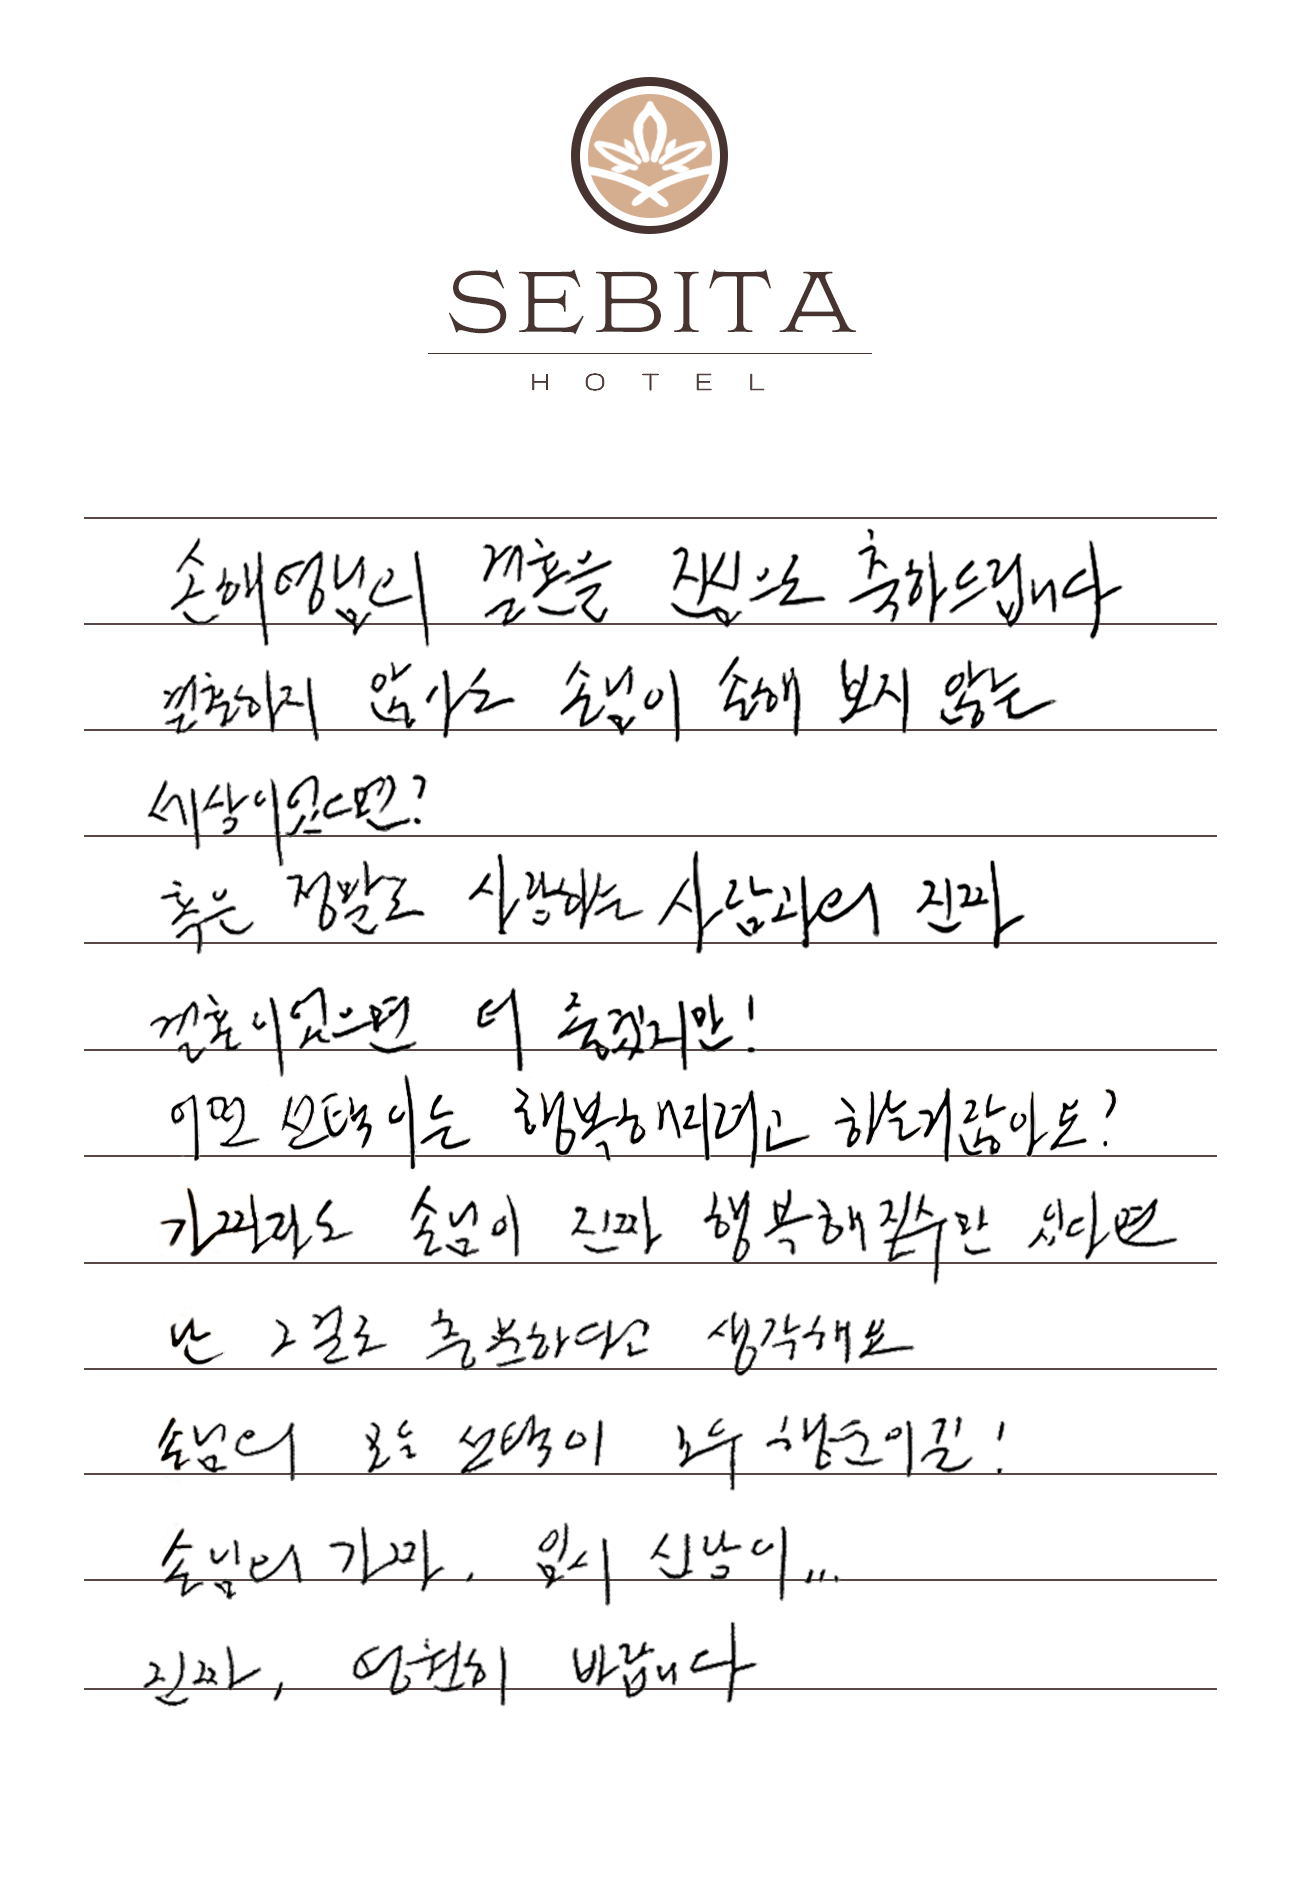 SEBITA
HOTEL
손해영님의 결혼을 진심으로 축하드립니다
결혼하지 않사도 손님이 손해 보지 않는
세상이었다면?
혹은 정말로 사랑하는 사람과의 진짜
결혼이었으면 더 좋겠지만!
어떤 선택이든 행복해지려고 하는거잖아요?
가짜라도 손님이 진짜 행복해질수만 있다면
난 그걸로 충분하다고 생각해요
손님의 모든 선택이 모두 행운이길!
손님의 가짜, 임시 신랑이...
진짜, 영원히 바랍니다